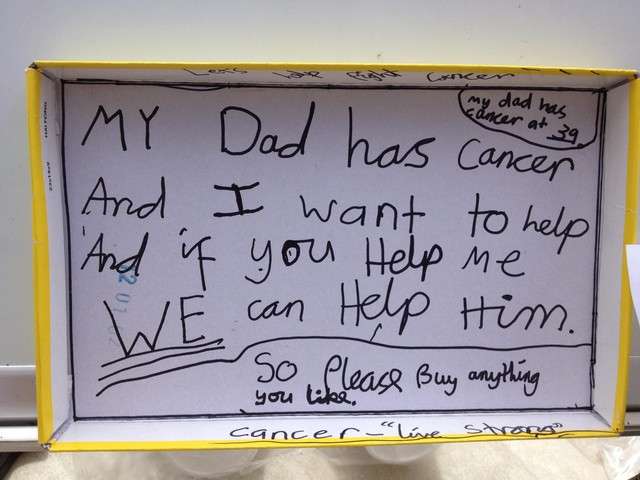 Let's fight Cancer
my dad has
cancer at 39
MY Dad has cancer
And I want to help
And if you Help Me
WE can Help Him.
So Please Buy anything
you like.
cancer - "Live Strong"